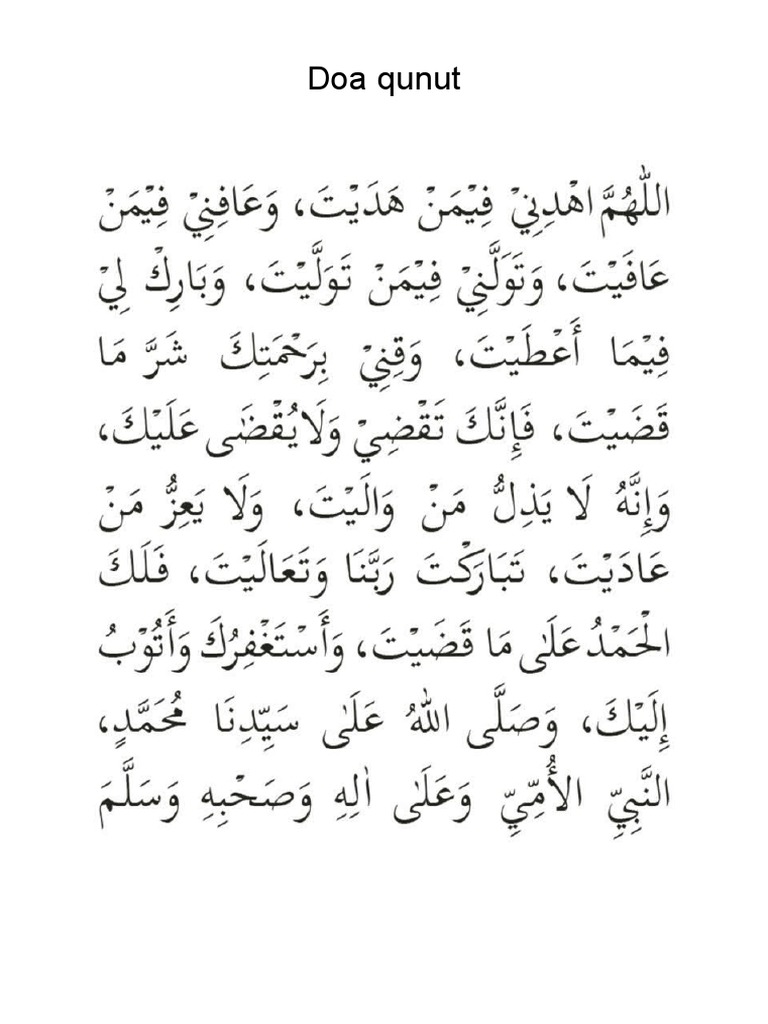 Doa qunut
اللّٰهُمَّ اهْدِنِيْ فِيْمَنْ هَدَيْتَ، وَعَافِنِيْ فِيْمَنْ
عَافَيْتَ، وَتَوَلَّنِيْ فِيْمَنْ تَوَلَّيْتَ، وَبَارِكْ لِيْ
فِيْمَا أَعْطَيْتَ، وَقِنِيْ بِرَحْمَتِكَ شَرَّ مَا
قَضَيْتَ، فَإِنَّكَ تَقْضِيْ وَلَا يُقْضَى عَلَيْكَ،
وَإِنَّهُ لَا يَذِلُّ مَنْ وَالَيْتَ، وَلَا يَعِزُّ مَنْ
عَادَيْتَ، تَبَارَكْتَ رَبَّنَا وَتَعَالَيْتَ، فَلَكَ
الْحَمْدُ عَلَى مَا قَضَيْتَ، وَأَسْتَغْفِرُكَ وَأَتُوْبُ
إِلَيْكَ، وَصَلَّى اللّٰهُ عَلَى سَيِّدِنَا مُحَمَّدٍ،
النَّبِيِّ الأُمِّيِّ وَعَلَى اٰلِهِ وَصَحْبِهِ وَسَلَّمَ